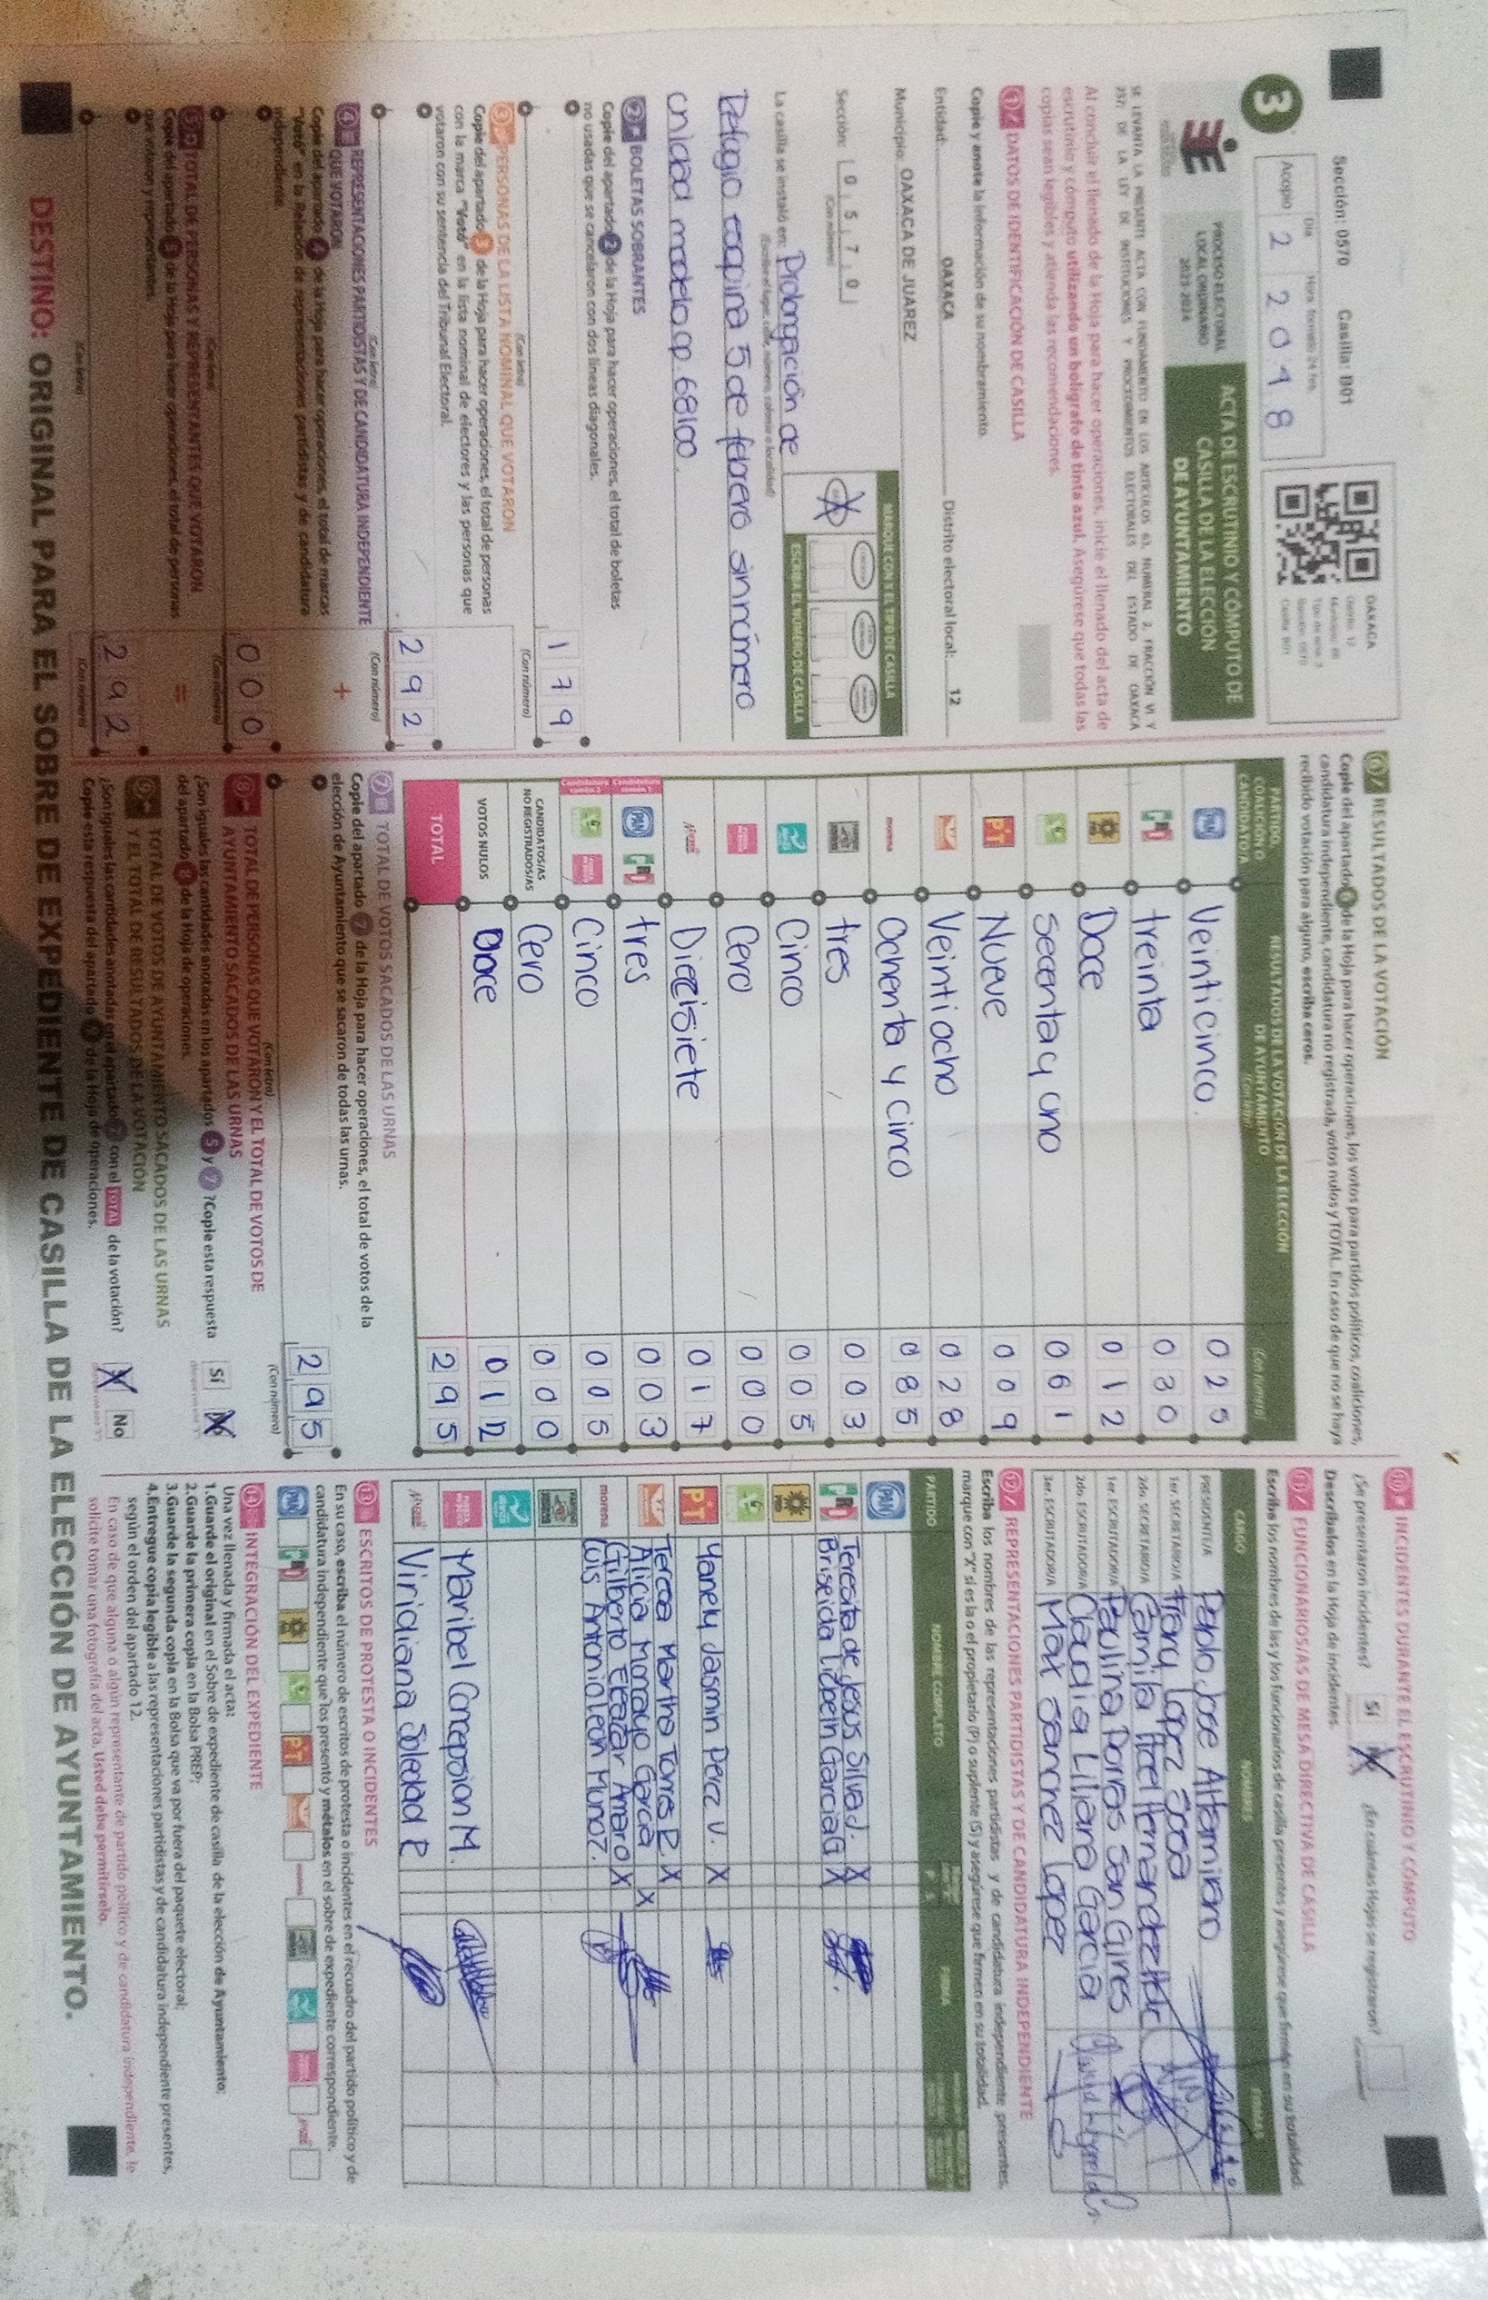 Sección: 0570 Casilla: B01
Día Hora formato 24 hrs.
3 Acopio 2 20 48
OAXACA
PROCESO ELECTORAL
LOCAL ORDINARIO
2023-2024
ACTA DE ESCRUTINIO Y CÓMPUTO DE
CASILLA DE LA ELECCIÓN
DE AYUNTAMIENTO
SE LEVANTA LA PRESENTE ACTA CON FUNDAMENTO EN LOS ARTÍCULOS 63, NUMERAL 2, FRACCIÓN VI Y
237; DE LA LEY DE INSTITUCIONES Y PROCEDIMIENTOS ELECTORALES DEL ESTADO DE OAXACA
Al concluir el llenado de la Hoja para hacer operaciones, inicie el llenado del acta de
escrutinio y cómputo utilizando un bolígrafo de tinta azul. Asegúrese que todas las
copias sean legibles y atienda las recomendaciones.
1 DATOS DE IDENTIFICACIÓN DE CASILLA
Copie y anote la información de su nombramiento.
Entidad: OAXACA Distrito electoral local: 12
Municipio: OAXACA DE JUAREZ
Sección: 0 5 7 0
(Con número)
MARQUE CON X EL TIPO DE CASILLA
ESCRIBA EL NÚMERO DE CASILLA
La casilla se instaló en: Prolongación de
(Escriba el lugar, calle, número, colonia o localidad)
Refugio esquina 5 de febrero sin número
unidad modelo cp. 68100.
2 BOLETAS SOBRANTES
Copie del apartado 2 de la Hoja para hacer operaciones, el total de boletas
no usadas que se cancelaron con dos líneas diagonales.
1 7 9
(Con letra) (Con número)
3 PERSONAS DE LA LISTA NOMINAL QUE VOTARON
Copie del apartado 3 de la Hoja para hacer operaciones, el total de personas
con la marca "Votó" en la lista nominal de electores y las personas que
votaron con su sentencia del Tribunal Electoral.
2 9 2
(Con letra) (Con número)
4 REPRESENTACIONES PARTIDISTAS Y DE CANDIDATURA INDEPENDIENTE
QUE VOTARON
+
Copie del apartado 4 de la Hoja para hacer operaciones, el total de marcas
"Votó" en la Relación de representaciones partidistas y de candidatura
independiente.
0 0 0
(Con letra) (Con número)
5 TOTAL DE PERSONAS Y REPRESENTANTES QUE VOTARON
=
Copie del apartado 5 de la Hoja para hacer operaciones, el total de personas
que votaron y representantes.
2 9 2
(Con letra) (Con número)
6 RESULTADOS DE LA VOTACIÓN
Copie del apartado 6 de la Hoja para hacer operaciones, los votos para partidos políticos, coaliciones,
candidatura independiente, candidatura no registrada, votos nulos y TOTAL. En caso de que no se haya
recibido votación para alguno, escriba ceros.
PARTIDO, COALICIÓN O CANDIDATO/A
RESULTADOS DE LA VOTACIÓN DE LA ELECCIÓN DE AYUNTAMIENTO
(Con letra) (Con número)
PAN Veinticinco. 0 2 5
PRI treinta 0 3 0
PRD Doce 0 1 2
Secenta y uno 0 6 1
PT Nueve 0 0 9
Veintiocho 0 2 8
morena Ochenta y cinco 0 8 5
tres 0 0 3
Cinco 0 0 5
Cero 0 0 0
Diecisiete 0 1 7
Candidatura común 1 PAN PRI tres 0 0 3
Candidatura común 2 Cinco 0 0 5
CANDIDATOS/AS NO REGISTRADOS/AS Cero 0 0 0
VOTOS NULOS Doce 0 1 2
TOTAL 2 9 5
7 TOTAL DE VOTOS SACADOS DE LAS URNAS
Copie del apartado 7 de la Hoja para hacer operaciones, el total de votos de la
elección de Ayuntamiento que se sacaron de todas las urnas.
2 9 5
(Con letra) (Con número)
8 TOTAL DE PERSONAS QUE VOTARON Y EL TOTAL DE VOTOS DE
AYUNTAMIENTO SACADOS DE LAS URNAS
¿Son iguales las cantidades anotadas en los apartados 5 y 7? Copie esta respuesta
del apartado 8 de la Hoja de operaciones.
Sí X
9 TOTAL DE VOTOS DE AYUNTAMIENTO SACADOS DE LAS URNAS
Y EL TOTAL DE RESULTADOS DE LA VOTACIÓN
¿Son iguales las cantidades anotadas en el apartado 7 con el TOTAL de la votación?
Copie esta respuesta del apartado 9 de la Hoja de operaciones.
X No
10 INCIDENTES DURANTE EL ESCRUTINIO Y CÓMPUTO
¿Se presentaron incidentes? Sí X ¿En cuántas Hojas se registraron?
Descríbalos en la Hoja de incidentes.
11 FUNCIONARIOS/AS DE MESA DIRECTIVA DE CASILLA
Escriba los nombres de las y los funcionarios de casilla presentes y asegúrese que firmen en su totalidad.
CARGO NOMBRES FIRMAS
PRESIDENTE/A Pablo Jose Altamirano
1er. SECRETARIO/A
2do. SECRETARIO/A Camila Itzel Hernandez
1er. ESCRUTADOR/A Paulina Porras San Gines
2do. ESCRUTADOR/A Claudia Liliana Garcia
3er. ESCRUTADOR/A Max Sanchez Lopez
12 REPRESENTACIONES PARTIDISTAS Y DE CANDIDATURA INDEPENDIENTE
Escriba los nombres de las representaciones partidistas y de candidatura independiente presentes,
marque con "X" si es la o el propietario (P) o suplente (S) y asegúrese que firmen en su totalidad.
PARTIDO NOMBRE COMPLETO FIRMA
PAN
PRI Teresita de Jesus Silva J. X
Briseida López Garcia G X
PRD
PT Yanely Jasmin Perez V. X
Teresa Martha Torres R X
Alicia Moncayo Garcia X
morena Gilberto Eleazar Amaro X
Luis Antonio León Muñoz.
Maribel Concepsion M.
Viridiana Soledad P
13 ESCRITOS DE PROTESTA O INCIDENTES
En su caso, escriba el número de escritos de protesta o incidentes en el recuadro del partido político y de
candidatura independiente que los presentó y métalos en el sobre de expediente correspondiente.
PAN PRI PRD PT morena
14 INTEGRACIÓN DEL EXPEDIENTE
Una vez llenada y firmada el acta:
1.Guarde el original en el Sobre de expediente de casilla de la elección de Ayuntamiento;
2.Guarde la primera copia en la Bolsa PREP;
3.Guarde la segunda copia en la Bolsa que va por fuera del paquete electoral;
4.Entregue copia legible a las representaciones partidistas y de candidatura independiente presentes,
según el orden del apartado 12.
En caso de que alguna o algún representante de partido político y de candidatura independiente, le
solicite tomar una fotografía del acta, Usted debe permitírselo.
DESTINO: ORIGINAL PARA EL SOBRE DE EXPEDIENTE DE CASILLA DE LA ELECCIÓN DE AYUNTAMIENTO.